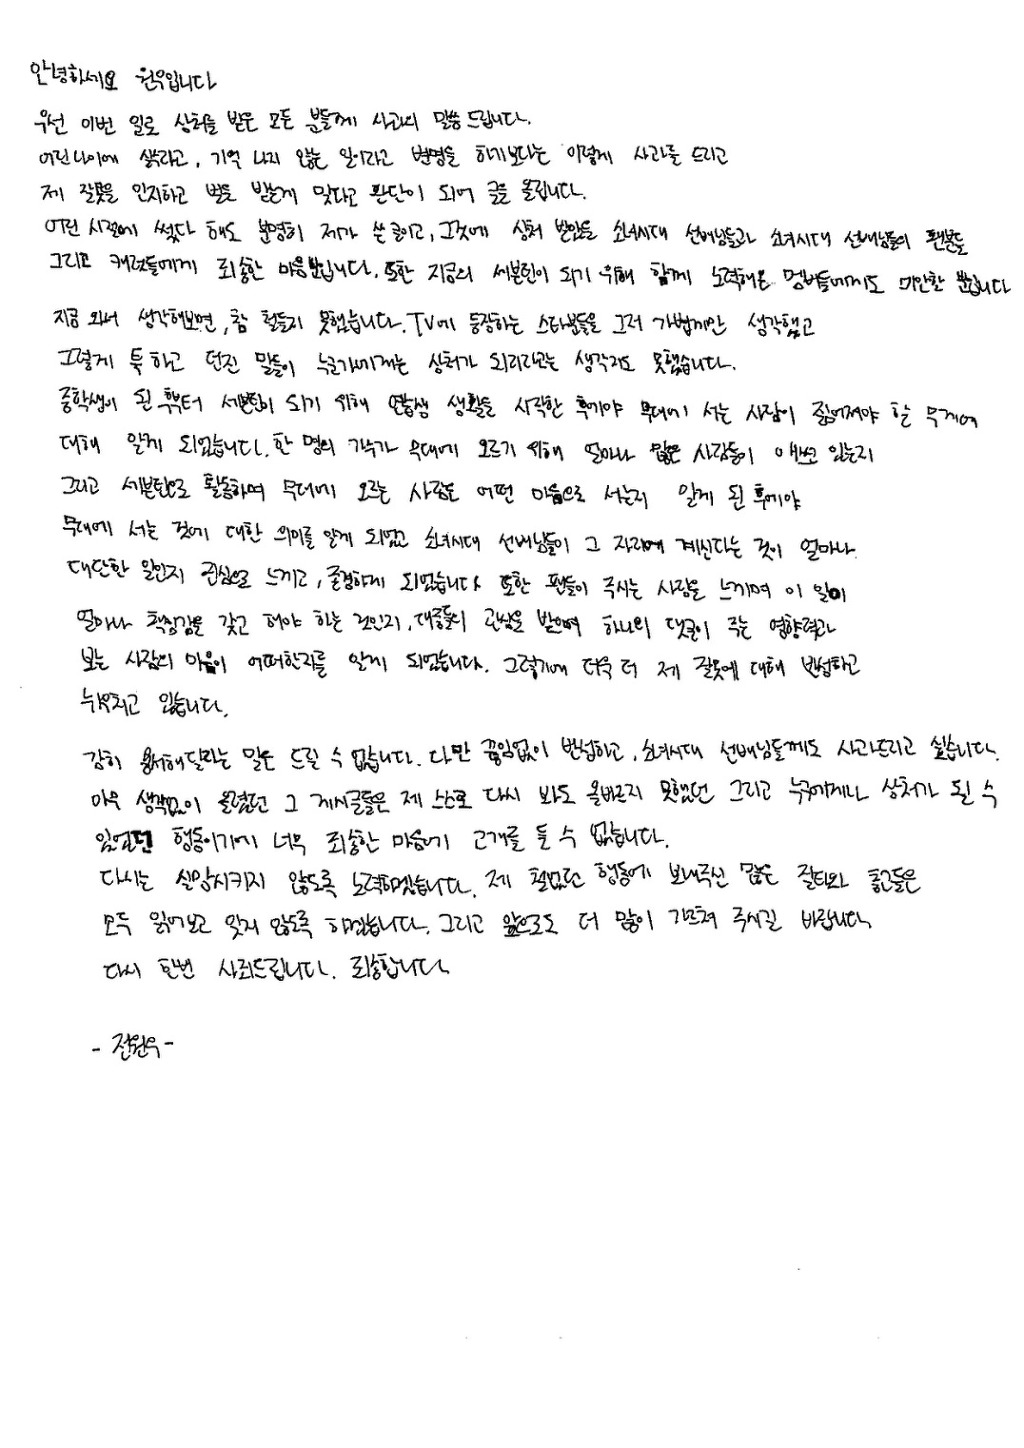 안녕하세요 원우입니다
우선 이번 일로 상처를 받은 모든 분들께 사과의 말씀 드립니다.
어린나이에 싫다고, 기억 나지 않는 일이라고 변명을 하기보다는 이렇게 사과를 드리고
제 잘못을 인지하고 벌을 받는게 맞다고 판단이 되어 글을 올립니다.
어린 시절에 썼다 해도 분명히 제가 쓴 글이고, 그것에 상처 받았을 소녀시대 선배님들과 소녀시대 선배님들의 팬분들
그리고 캐럿들에게 죄송한 마음뿐입니다. 또한 지금의 세븐틴이 되기 위해 함께 노력해온 멤버들에게도 미안할 뿐입니다
지금 와서 생각해보면, 참 철들지 못했습니다. TV에 등장하는 스타분들을 그저 가볍게만 생각했고
그렇게 툭 하고 던진 말들이 누군가에게는 상처가 되리라고는 생각지도 못했습니다.
중학생이 된 후부터 세븐틴이 되기 위해 연습생 생활을 시작한 후에야 무대에 서는 사람이 짊어져야 할 무게에
대해 알게 되었습니다. 한 명의 가수가 무대에 오르기 위해 얼마나 많은 사람들이 애쓰고 있는지
그리고 세븐틴으로 활동하며 무대에 오르는 사람은 어떤 마음으로 서는지 알게 된 후에야
무대에 서는 것에 대한 의미를 알게 되었고 소녀시대 선배님들이 그 자리에 계신다는 것이 얼마나
대단한 일인지 진심으로 느끼고, 존경하게 되었습니다 또한 팬들이 주시는 사랑을 느끼며 이 일이
얼마나 책임감을 갖고 해야 하는 것인지, 대중들의 관심을 받으며 하나의 댓글이 주는 영향력과
보는 사람의 마음이 어떠한지를 알게 되었습니다. 그렇기에 더욱 더 제 잘못에 대해 반성하고
뉘우치고 있습니다.
감히 용서해달라는 말은 드릴 수 없습니다. 다만 끊임없이 반성하고, 소녀시대 선배님들께도 사과드리고 싶습니다.
아무 생각없이 올렸던 그 게시글들은 제 스스로 다시 봐도 올바르지 못했던 그리고 누구에게나 상처가 될 수
있었던 행동이기에 너무 죄송한 마음에 고개를 들 수 없습니다.
다시는 실망시키지 않도록 노력하겠습니다. 제 철없던 행동에 보내주신 많은 질타와 충고들은
모두 읽어보고 잊지 않도록 하겠습니다. 그리고 앞으로도 더 많이 가르쳐 주시길 바랍니다
다시 한번 사죄드립니다. 죄송합니다
- 전원우 -